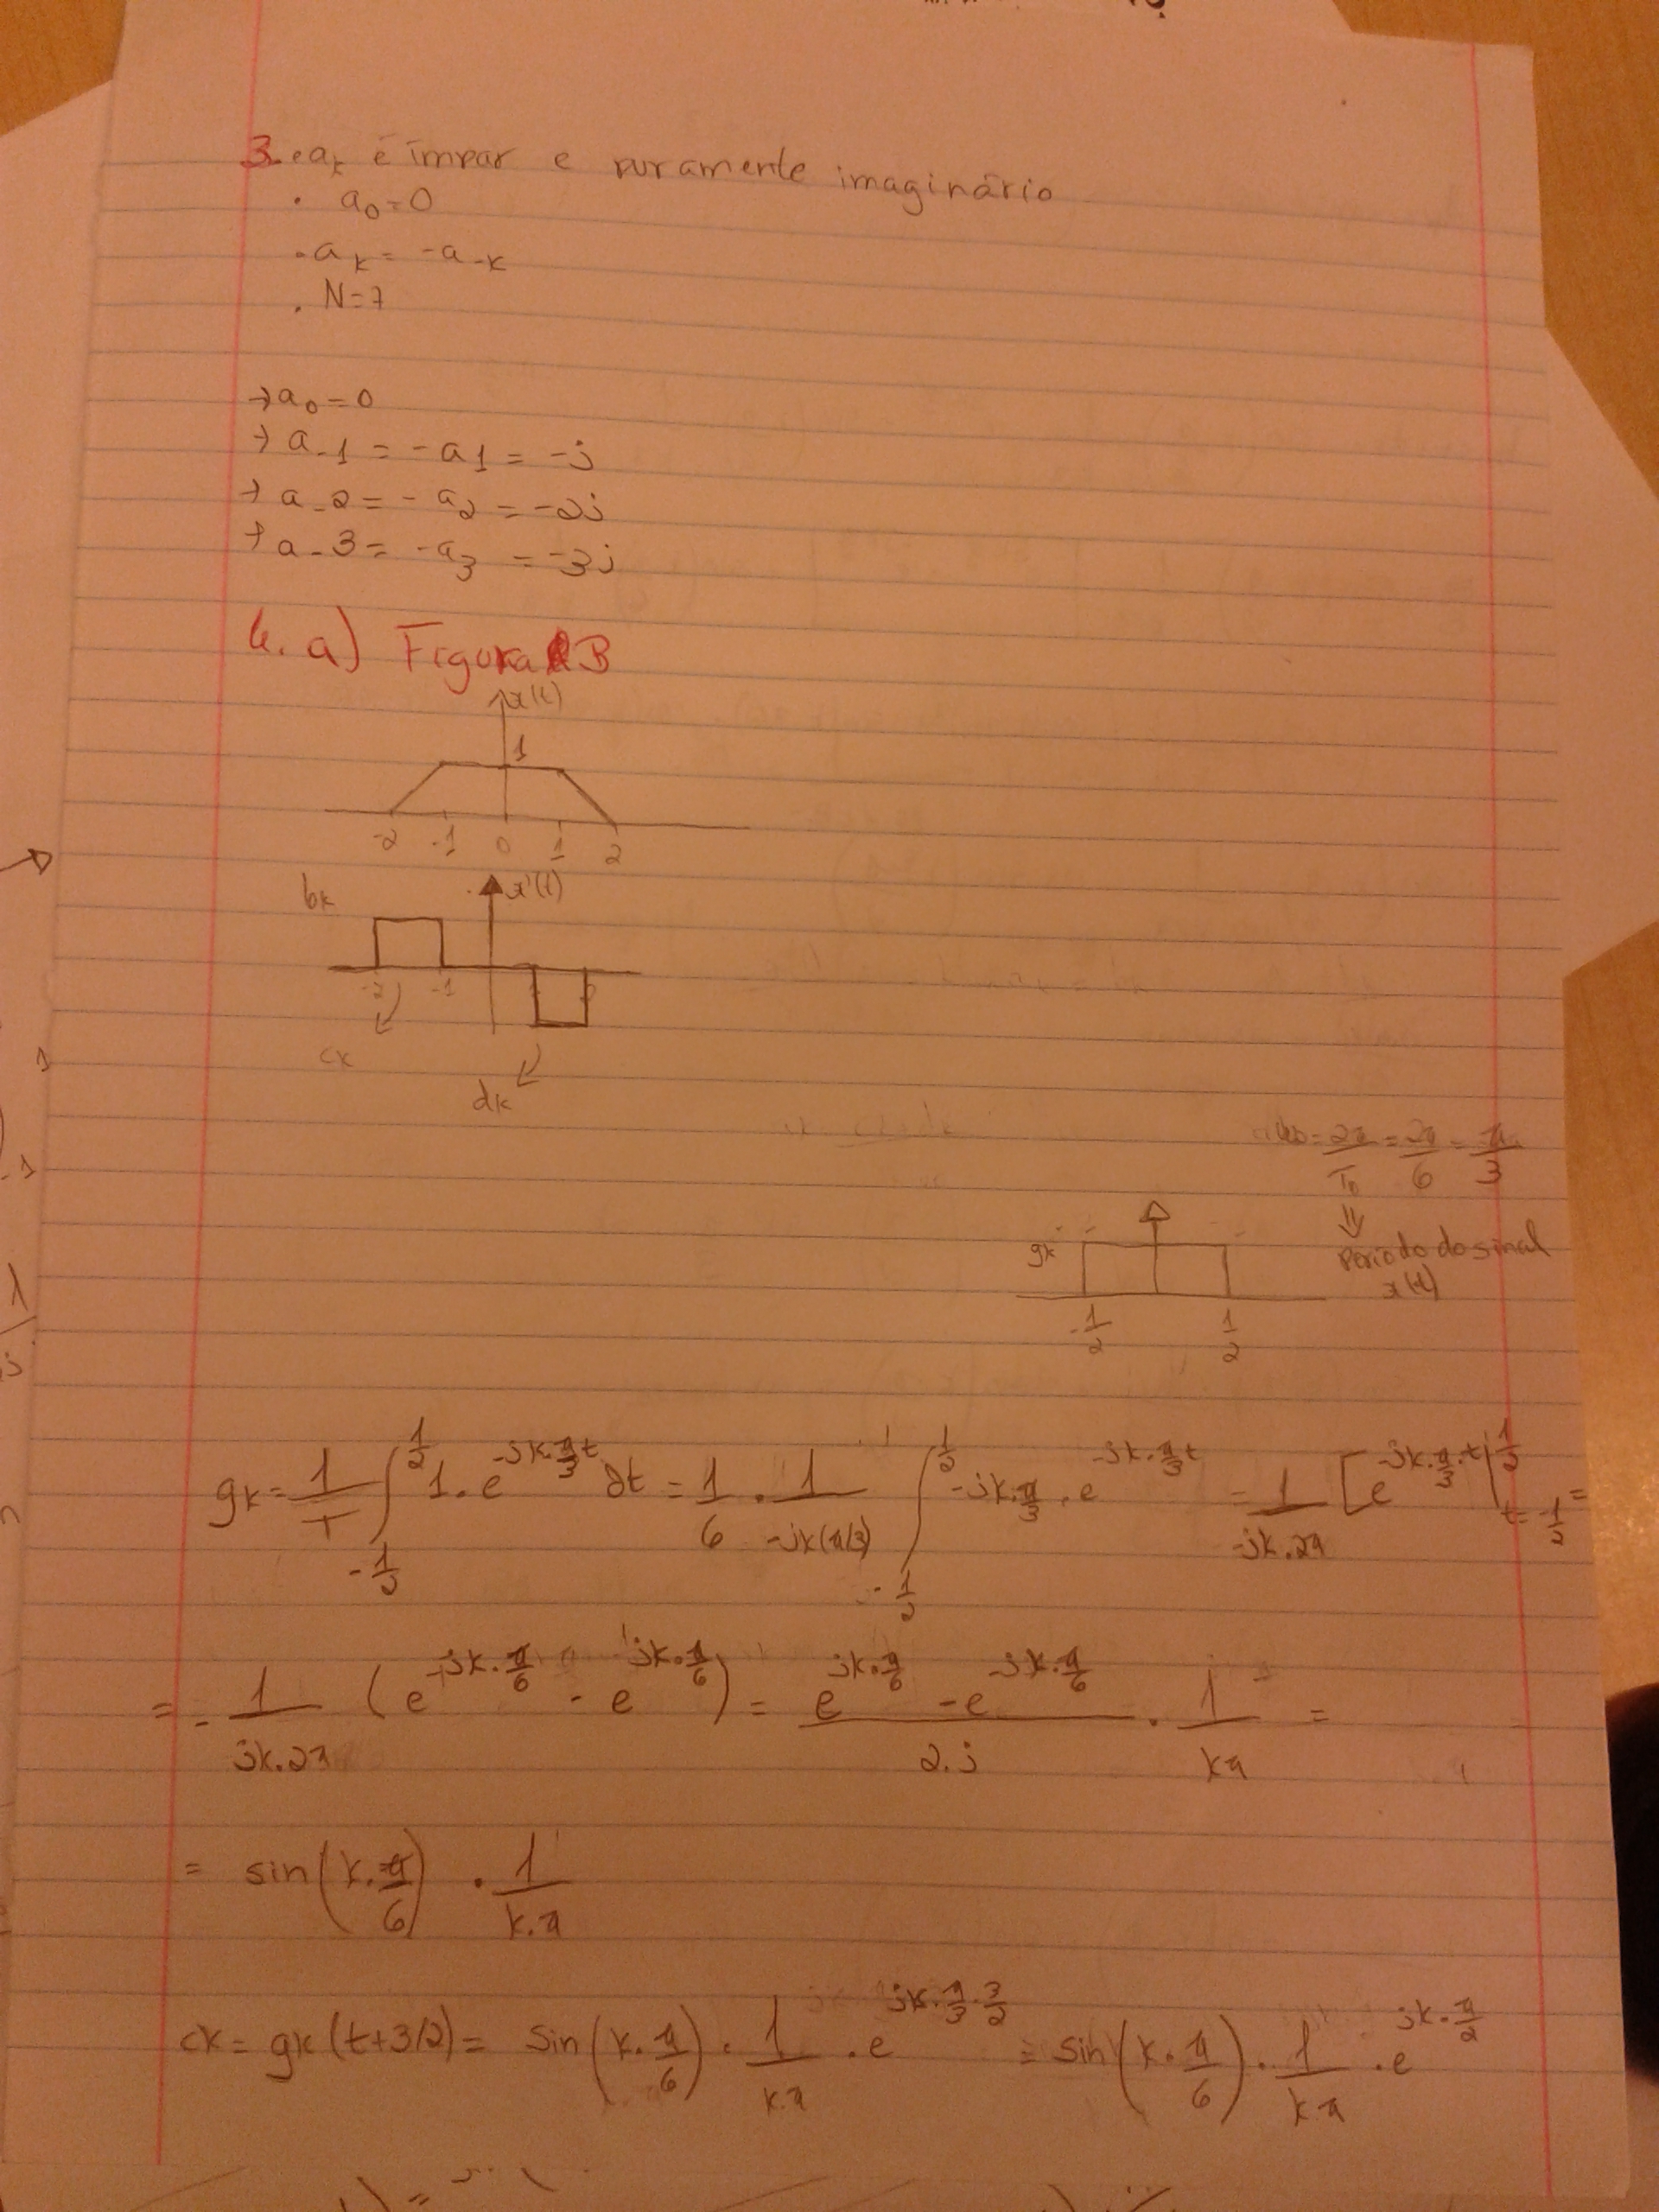 3. • aₖ é ímpar e puramente imaginário
• a₀ = 0
• aₖ = -a₋ₖ
• N = 7
→ a₀ = 0
→ a₋₁ = -a₁ = -j
→ a₋₂ = -a₂ = -2j
→ a₋₃ = -a₃ = -3j
4. a) Figura B
x(t)
1
-2 -1 0 1 2
bk x'(t)
-2 -1
ck
dk
ω₀ = 2π/T₀ = 2π/6 = π/3
⇓
gk Período do sinal
x(t)
-1/2 1/2
gk = 1/T ∫_{-1/2}^{1/2} 1 . e^{-jk.π/3 t} dt = 1/6 . 1/(-jk(π/3)) ∫_{-1/2}^{1/2} -jk.π/3 . e^{-jk.π/3 t} = 1/(-jk.2π) [e^{-jk.π/3.t} |_{t=-1/2}^{1/2} =
= - 1/(jk.2π) (e^{-jk.π/6} - e^{jk.π/6}) = (e^{jk.π/6} - e^{-jk.π/6})/(2.j) . 1/(kπ) =
= sin(k.π/6) . 1/(k.π)
ck = gk(t+3/2) = sin(k.π/6) . 1/(k.π) . e^{jk.π/3.3/2} = sin(k.π/6) . 1/(kπ) . e^{jk.π/2}